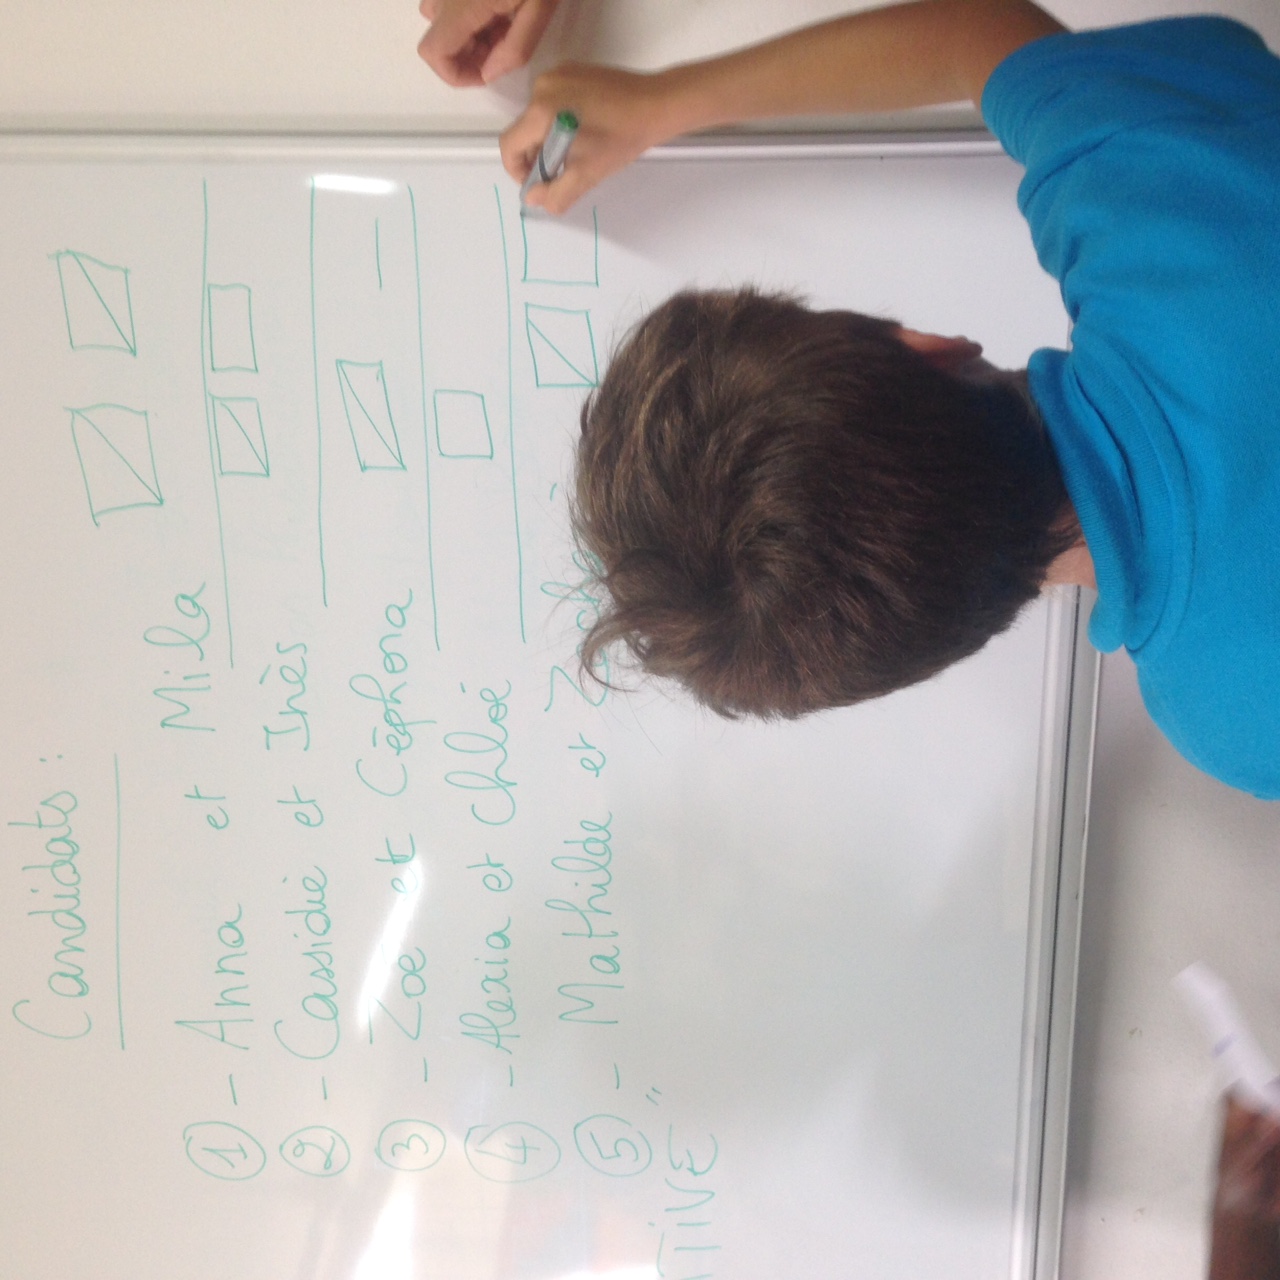 Candidats :
① - Anna et Mila
② - Cassidie et Inès
③ - Zoé et Céphora
④ - Alexia et Chloé
⑤ - Mathilde et